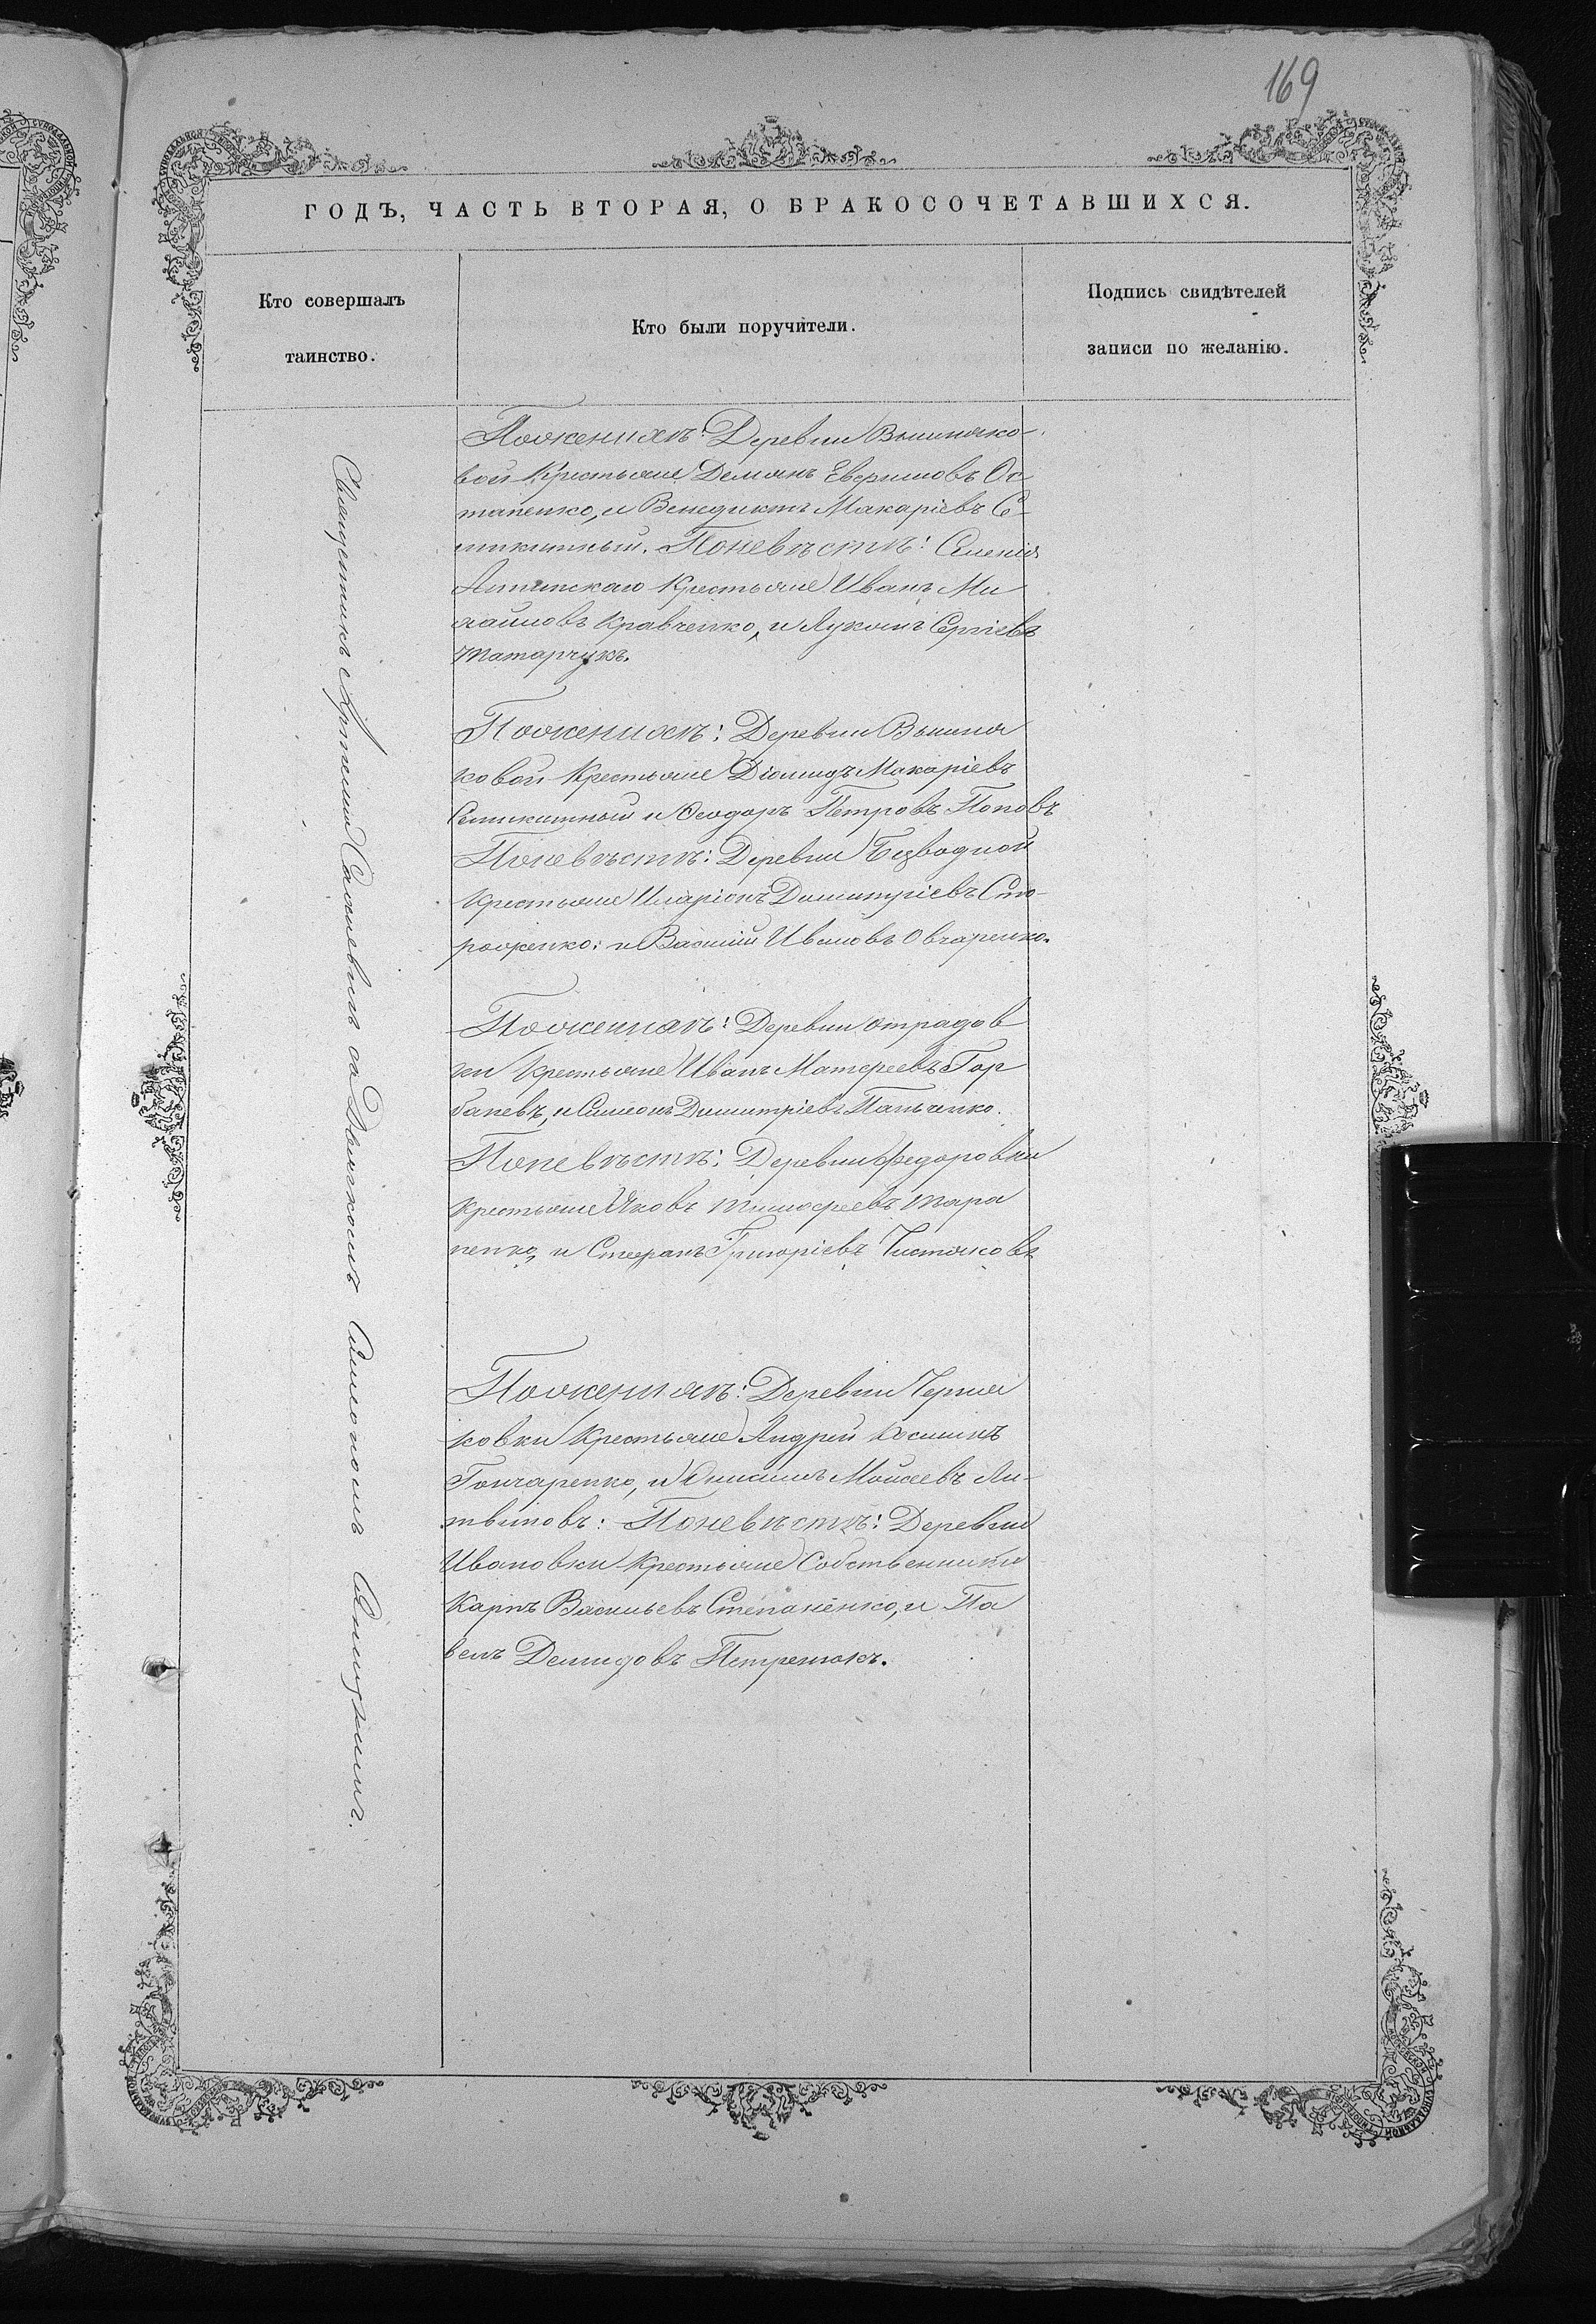 169
ГОДЪ, ЧАСТЬ ВТОРАЯ, О БРАКОСОЧЕТАВШИХСЯ.
Кто совершалъ
таинство.
Кто были поручители.
Подпись свидѣтелей
записи по желанію.
Священникъ Артемий съ Дьячкомъ Симономъ
Поженихѣ: Деревни Вышняко-
вой Крестьяне Демянъ Евфимовъ Ос
тапенко, и Венедиктъ Макаріевъ Се-
микитный. Поневѣстѣ: Селенія
Крестьяне Иванъ Ми
хайловъ Кравченко, и Лукіанъ Сергіевъ
Татарчукъ.
Поженихѣ: Деревни Вышня
ковой Крестьяне Діомидъ Макаріевъ
Семикитный и Ѳеодоръ Петровъ Поповъ
Поневѣстѣ: Деревни Безводной
Крестьяне Иларіонъ Димитріевъ Сто-
роженко: и Василій Ивановъ Овчаренко.
Поженихѣ: Деревни Отрадов
ки Крестьяне Иванъ Матфеевъ Гор
баневъ, и Симеонъ Димитріевъ Панченко.
Поневѣстѣ: Деревни Федоровки
Крестьяне Яковъ Тимофеевъ Тара
ненко, и Стефанъ Григоріевъ Чистяковъ
Поженихѣ: Деревни Черня
ковки Крестьяне Андрей Косминъ
Гончаренко, и Онисимъ Моисеевъ Ли-
твиновъ: Поневѣстѣ: Деревни
Ивановки Крестьяне Собственники
Карпъ Васильевъ Степаненко, и Па
велъ Демидовъ Петренюкъ.